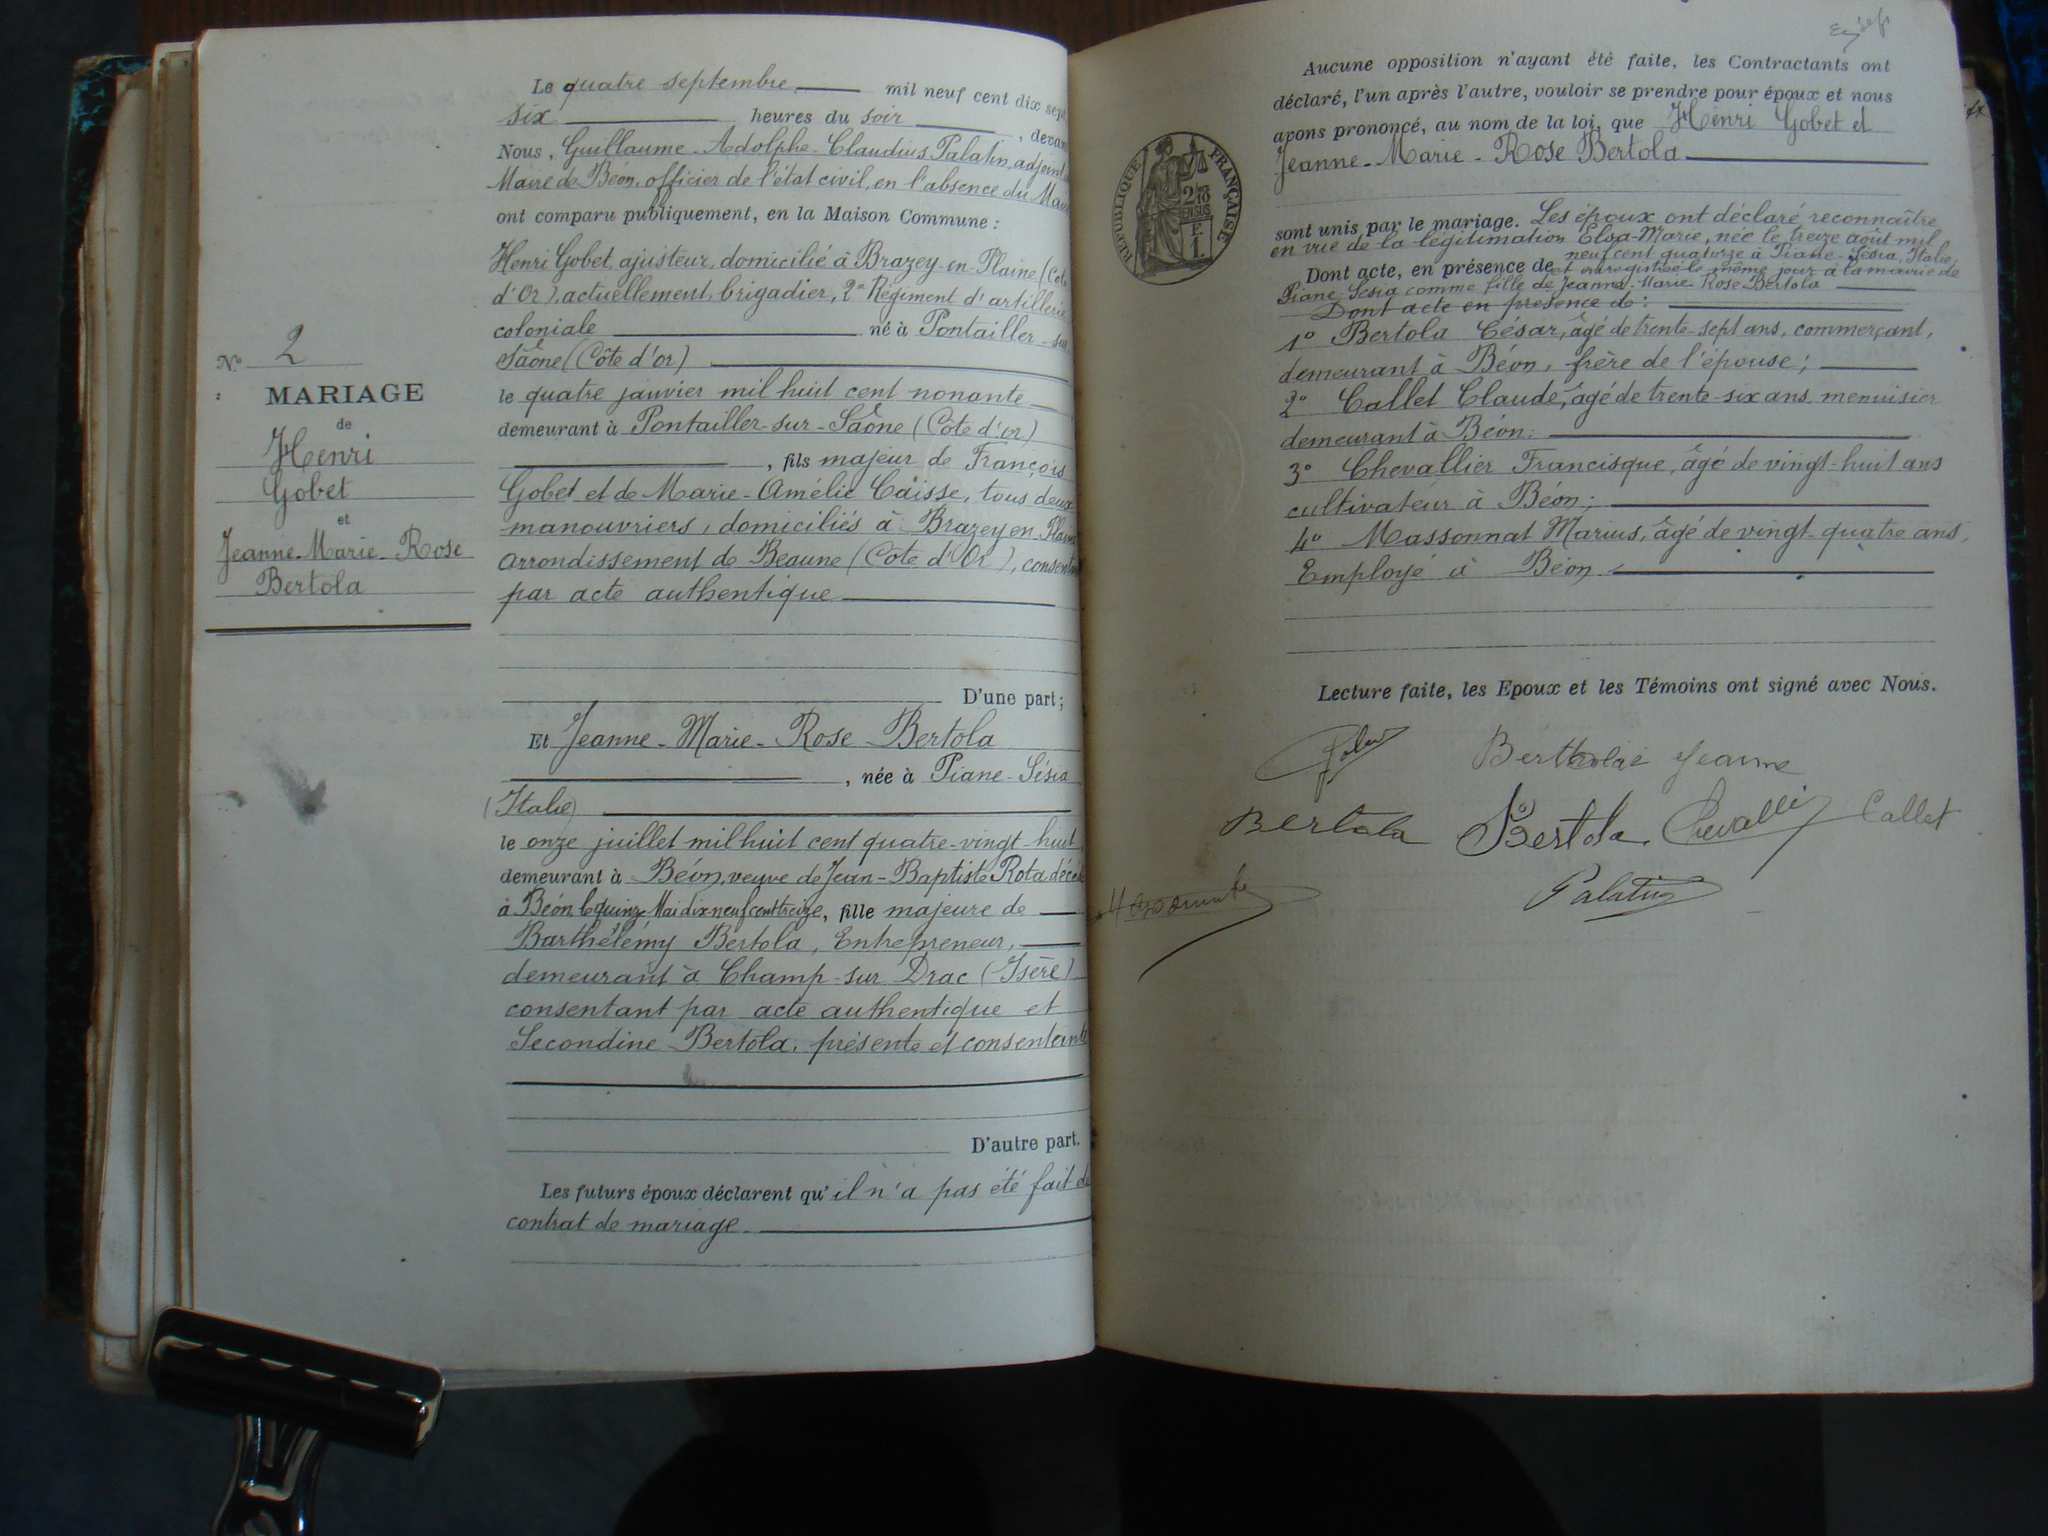 Nº 2
MARIAGE
de
Henri
Gobet
et
Jeanne-Marie-Rose
Bertola
Le quatre septembre mil neuf cent dix sept
six heures du soir, devan
Nous, Guillaume-Adolphe-Claudius Palatin, adjoint
Maire de Béon, officier de l'état civil, en l'absence du Mai
ont comparu publiquement, en la Maison Commune :
Henri Gobet, ajusteur, domicilié à Brazey-en-Plaine (Cote
d'Or), actuellement brigadier, 2e Régiment d'artillerie
coloniale né à Pontailler-sur
Saône (Côte d'or)
le quatre janvier mil huit cent nonante
demeurant à Pontailler-sur-Saône (Côte d'or)
, fils majeur de François
Gobet et de Marie-Amélie Caisse, tous deux
manouvriers, domiciliés à Brazey en Plaine
arrondissement de Beaune (Cote d'Or), consent
par acte authentique
D'une part ;
Et Jeanne-Marie-Rose Bertola
, née à Piane-Sésia
(Italie)
le onze juillet mil huit cent quatre-vingt huit
demeurant à Béon, veuve de Jean-Baptiste Rota décédé
à Béon le quinze Mai dix neuf cent treize, fille majeure de
Barthélémy Bertola, Entrepreneur,
demeurant à Champ-sur Drac (Isère)
consentant par acte authentique et
Secondine Bertola, présente et consentante
D'autre part.
Les futurs époux déclarent qu'il n'a pas été fait de
contrat de mariage
Aucune opposition n'ayant été faite, les Contractants ont
déclaré, l'un après l'autre, vouloir se prendre pour époux et nous
avons prononcé, au nom de la loi, que Henri Gobet et
Jeanne-Marie-Rose Bertola
RÉPUBLIQUE FRANÇAISE
sont unis par le mariage. Les époux ont déclaré reconnaître
en vue de la légitimation Elsa-Marie, née le treize août mil
neuf cent quatorze à Piane-Sésia, Italie,
Dont acte, en présence de et enregistrée le même jour à la mairie de
Piane Sésia comme fille de Jeanne-Marie-Rose Bertola
Dont acte en présence de :
1º Bertola César, âgé de trente-sept ans, commerçant,
demeurant à Béon, frère de l'épouse ;
2º Callet Claude, âgé de trente-six ans menuisier
demeurant à Béon.
3º Chevallier Francisque, âgé de vingt-huit ans
cultivateur à Béon ;
4º Massonnat Marius, âgé de vingt-quatre ans,
Employé à Béon.
Lecture faite, les Epoux et les Témoins ont signé avec Nous.
Jeanne
Bertola Bertola Chevallier Callet
Palatin